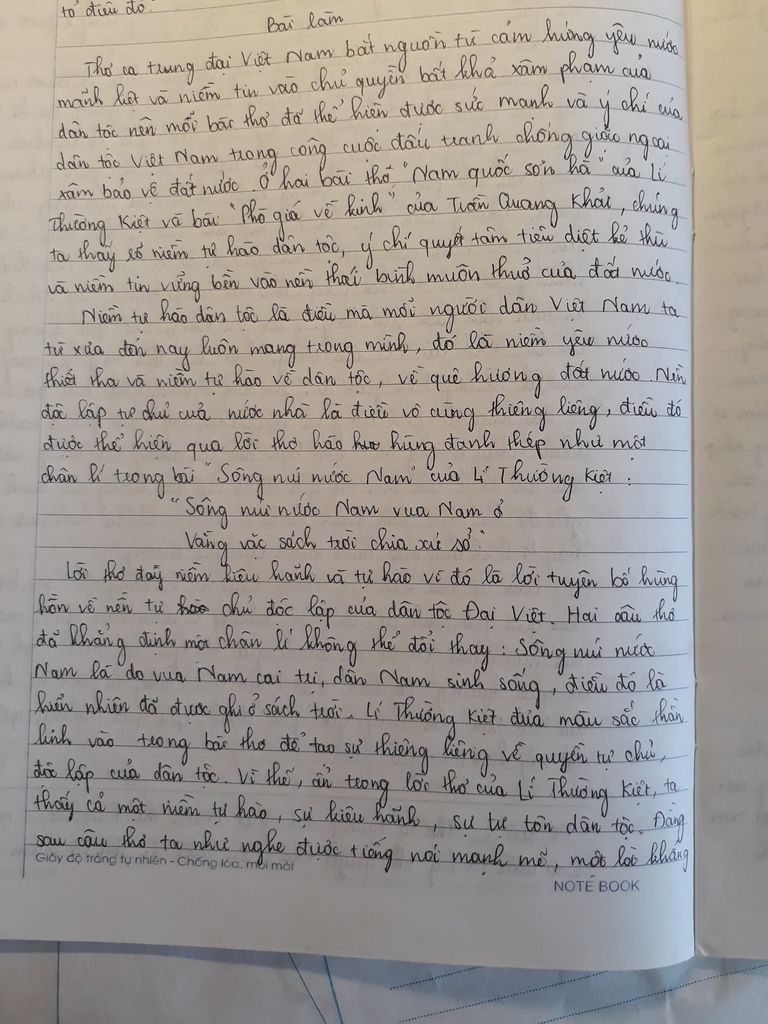 tỏ điều đó.
Bài làm
Thơ ca trung đại Việt Nam bắt nguồn từ cảm hứng yêu nước
mãnh liệt và niềm tin vào chủ quyền bất khả xâm phạm của
dân tộc nên mỗi bài thơ đã thể hiện được sức mạnh và ý chí của
dân tộc Việt Nam trong công cuộc đấu tranh chống giặc ngoại
xâm bảo vệ đất nước. Ở hai bài thơ "Nam quốc sơn hà" của Lí
Thường Kiệt và bài "Phò giá về kinh" của Trần Quang Khải, chúng
ta thấy rõ niềm tự hào dân tộc, ý chí quyết tâm tiêu diệt kẻ thù
và niềm tin vững bền vào nền thái bình muôn thuở của đất nước.
Niềm tự hào dân tộc là điều mà mỗi người dân Việt Nam ta
từ xưa đến nay luôn mang trong mình, đó là niềm yêu nước
thiết tha và niềm tự hào về dân tộc, về quê hương đất nước. Nền
độc lập tự chủ của nước nhà là điều vô cùng thiêng liêng, điều đó
được thể hiện qua lời thơ hào hùng đanh thép như một
chân lí trong bài "Sông núi nước Nam" của Lí Thường Kiệt:
"Sông núi nước Nam vua Nam ở
Vằng vặc sách trời chia xứ sở."
Lời thơ đầy niềm kiêu hãnh và tự hào vì đó là lời tuyên bố hùng
hồn về nền tự chủ độc lập của dân tộc Đại Việt. Hai câu thơ
đã khẳng định một chân lí không thể đổi thay: Sông núi nước
Nam là do vua Nam cai trị, dân Nam sinh sống, điều đó là
hiển nhiên đã được ghi ở sách trời. Lí Thường Kiệt đưa màu sắc thần
linh vào trong bài thơ để tạo sự thiêng liêng về quyền tự chủ,
độc lập của dân tộc. Vì thế, ẩn trong lời thơ của Lí Thường Kiệt, ta
thấy cả một niềm tự hào, sự kiêu hãnh, sự tự tôn dân tộc. Đằng
sau câu thơ ta như nghe được tiếng nói mạnh mẽ, một lời khẳng
Giấy độ trắng tự nhiên - Chống lóa, mỏi mắt
NOTE BOOK